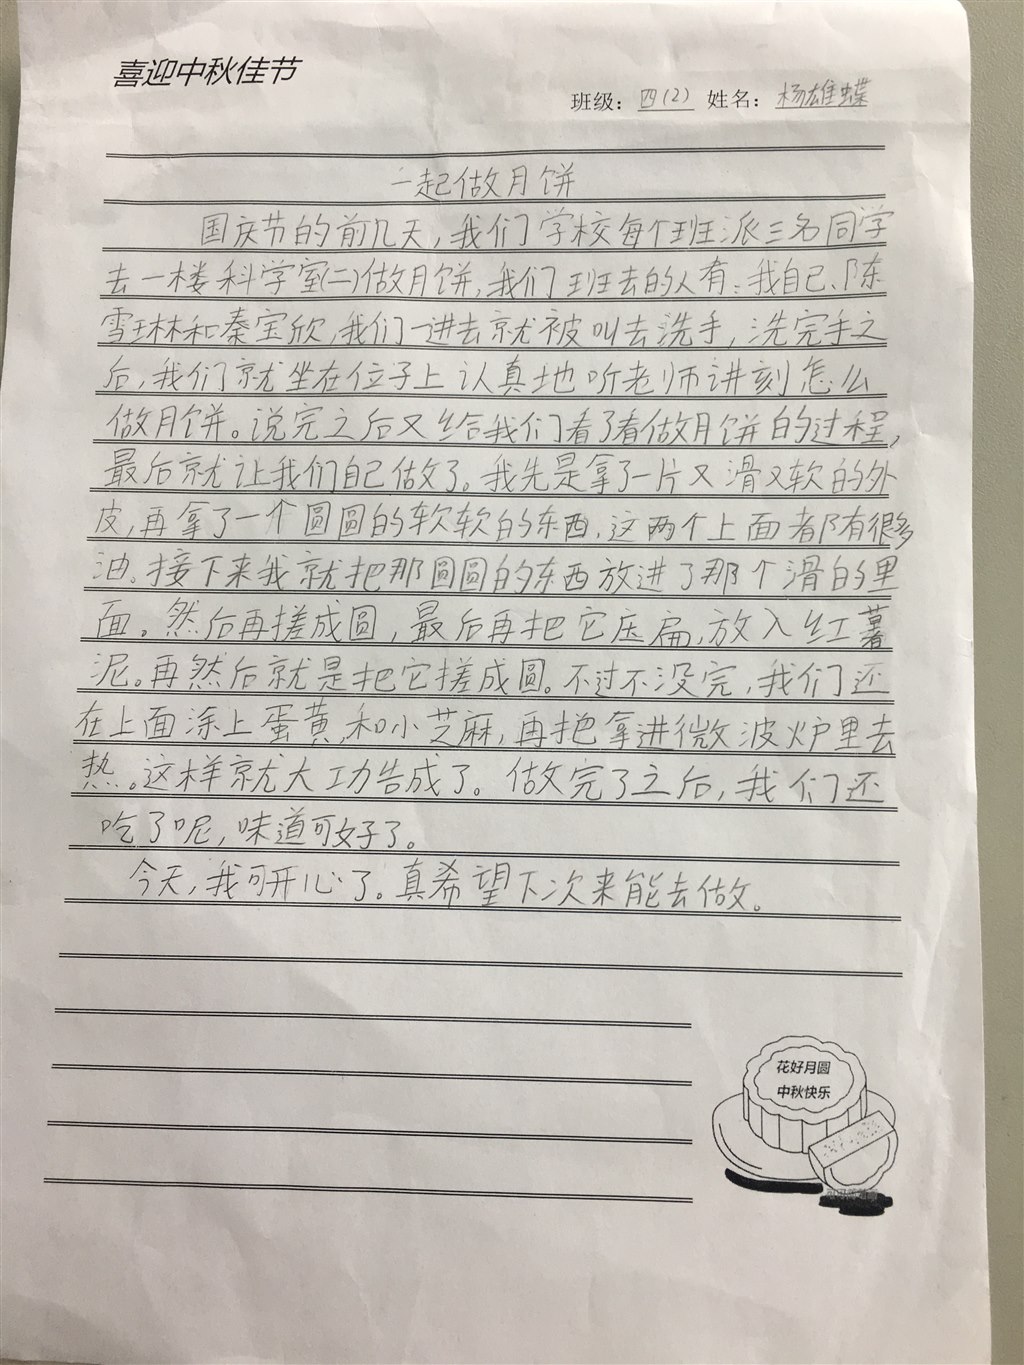 喜迎中秋佳节
班级：四(2) 姓名：杨雄蝶
一起做月饼
国庆节的前几天，我们学校每个班派三名同学
去一楼科学室(二)做月饼，我们班去的人有：我自己、陈
雪琳和秦宝欣，我们一进去就被叫去洗手，洗完手之
后，我们就坐在位子上认真地听老师讲刻怎么
做月饼。说完之后又给我们看了看做月饼的过程，
最后就让我们自己做了。我先是拿了一片又滑又软的外
皮，再拿了一个圆圆的软软的东西，这两个上面都有很多
油。接下来我就把那圆圆的东西放进了那个滑的里
面。然后再搓成圆，最后再把它压扁，放入红薯
泥。再然后就是把它搓成圆。不过不没完，我们还
在上面涂上蛋黄，和小芝麻，再把拿进微波炉里去
热。这样就大功告成了。做完了之后，我们还
吃了呢，味道可好了。
今天，我可开心了。真希望下次来能去做。
花好月圆
中秋快乐